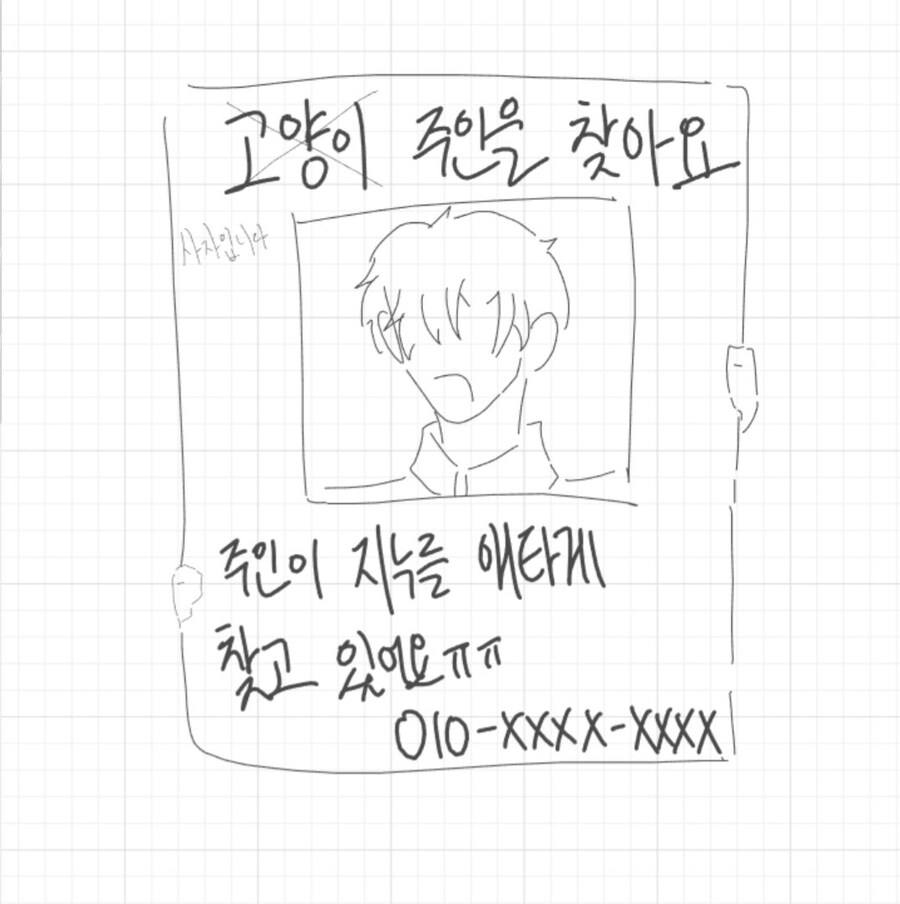 고양이 주인을 찾아요
사자입니다
주인이 지누를 애타게
찾고 있어요ㅠㅠ
010-XXXX-XXXX